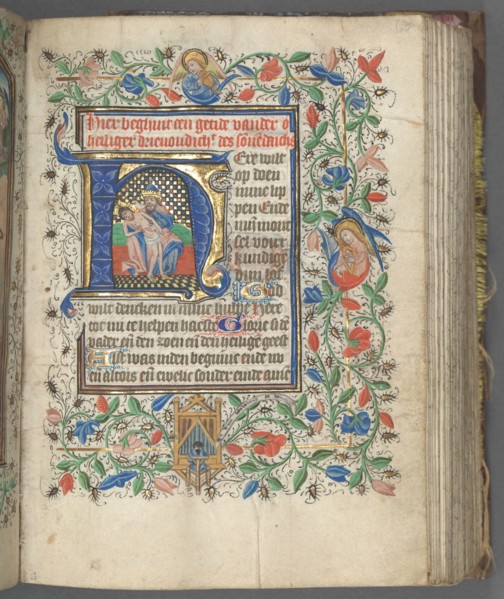 Hier beghint een getide vander
heiligher drievoudich des sonnendachs
Ere wilt
op doen
mine lip
pen Ende
mijn mont
sel voort
kundighē
dijn lof
God
wilt dencken in mine hulpe Here
tot mi te helpen haeste Glorie si dē
vader eñ den zoen eñ den heilighē geest
Als was inden beghinne ende nu
eñ altois eñ ewelic sonder einde amē